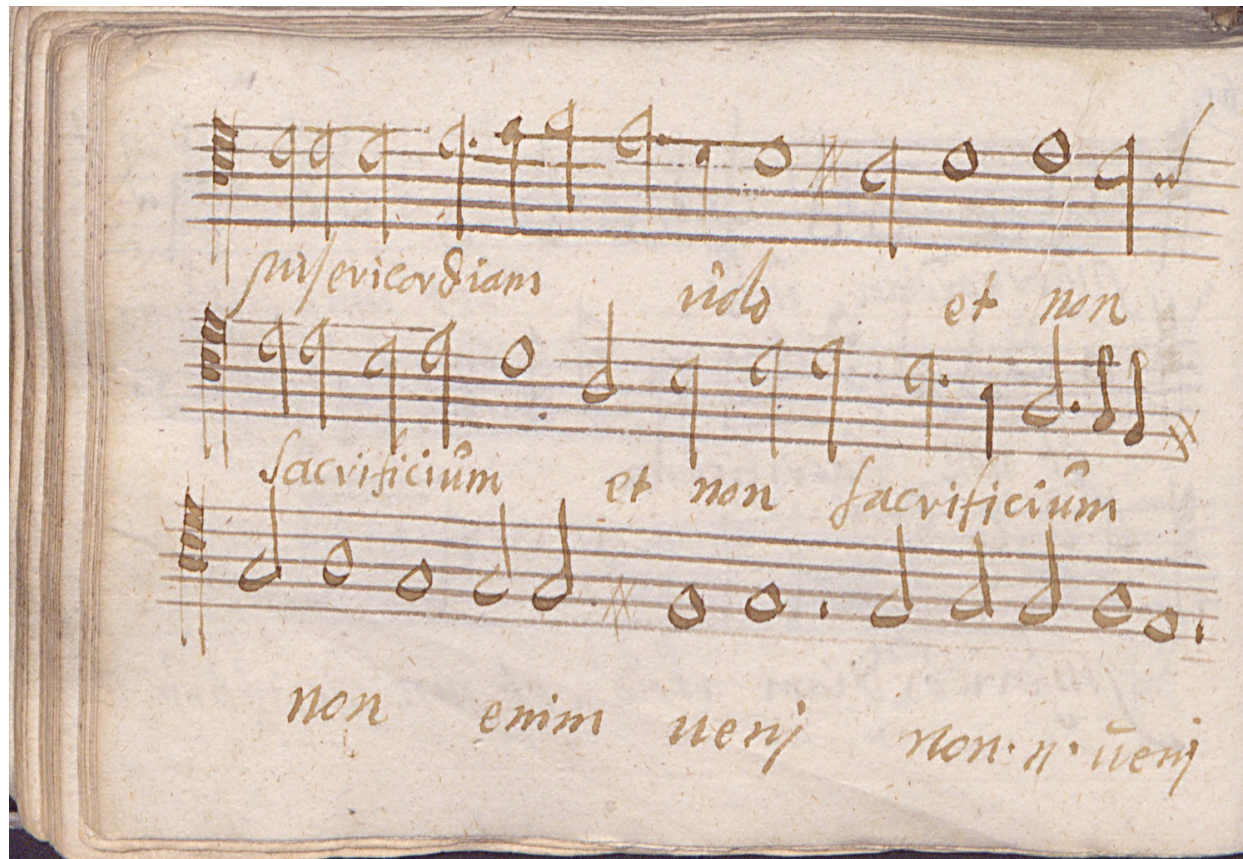 misericordiam uolo et non
sacrificiũm et non sacrificiũm
non enim uenj non · n · uenj